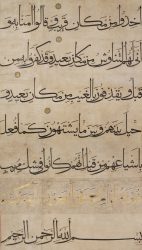 أخذوا من مكان قريب وقالوا آمنا به و
أنى لهم التناوش من مكان بعيد وقد كفروا به من
قبل ويقذفون بالغيب من مكان بعيد و
حيل بينهم وبين ما يشتهون كما فعل
بأشياعهم من قبل إنهم كانوا في شك مريب
بسم الله الرحمن الرحيم